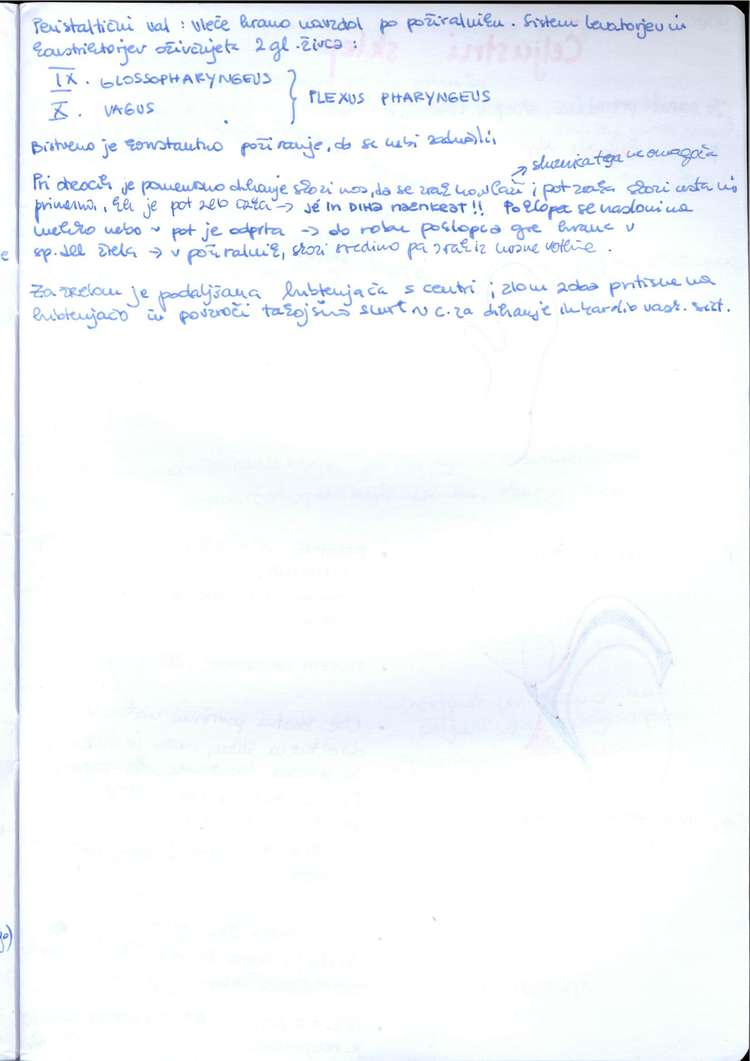 Peristaltični val : vleče hrano navzdol po požiralniku. Sistem levatorjev in
konstriktorjev oživčujeta 2 gl. živca :
IX. GLOSSOPHARYNGEUS
X. VAGUS
PLEXUS PHARYNGEUS
Bistveno je konstantno požiranje, da se nebi zadušili
→ sluznica tega ne omogoča
Pri otrocih je pomembno dihanje skozi nos, da se zrak novlaži ; pot zraka skozi usta ni
primerna, ker je pot zelo → JE IN DIHA NAENKRAT!! Poklopec se nasloni na
mehko nebo ~ pot je odprta → ob robu poklopca gre hrana v
sp. del žrela → v požiralnik, skozi sredino pa zrak iz nosne votline.
Za zrelom je podaljšana hrbtenjača s centri ; zlom zoba pritisne na
hrbtenjačo in povzroči takojšno smrt ~ c. za dihanje in kardio vask. sist.